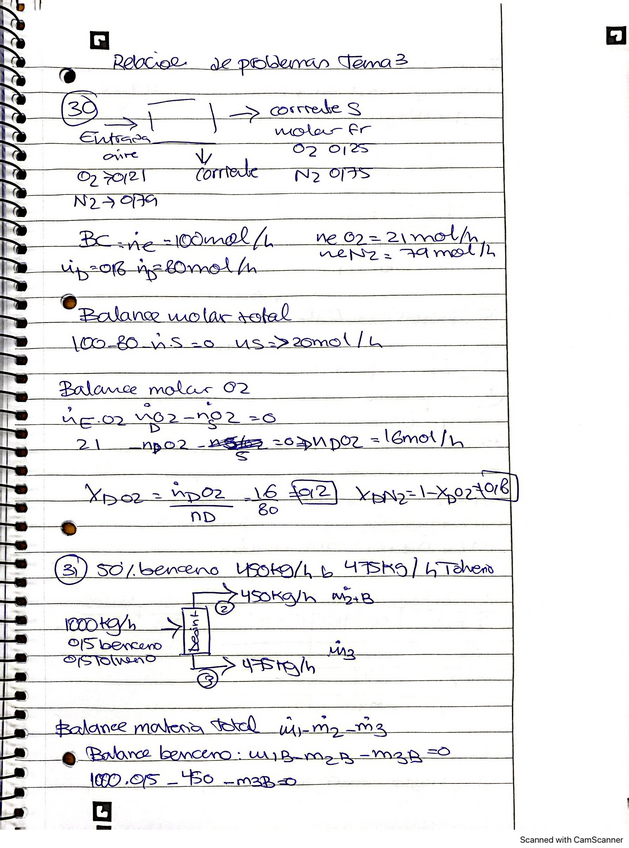 Relacioe de problemas Tema 3
30
→ corrrete S
molar fr
O2 0,25
N2 0,75
Entrada
aire
O2→0,21
N2→0,79
corriente
BC: ṅe = 100 mol/h
ne O2 = 21 mol/h
ne N2 = 79 mol/h
ṅD=0,8 ṅD=80mol/h
Balance molar total
100-80-ṅS=0 nS=>20mol/h
Balance molar O2
ṅE.O2 ṅDO2-ṅSO2=0
21 -nDO2 - 5 =0=>nDO2=16mol/h
XDO2 = ṅDO2/nD = 16/80 = 0,2 XDN2=1-XDO2=0,8
31 50% benceno 450kg/h b 475kg/h Tolueno
→ 450kg/h ṁ2+B
2
1000kg/h
0,5 benceno
0,5 tolueno
ṁ3
→ 475kg/h
3
Balance materia total ṁ1-ṁ2-ṁ3
Balance benceno: m1B-m2B-m3B=0
1000.0,5 - 450 - m3B=0
Scanned with CamScanner